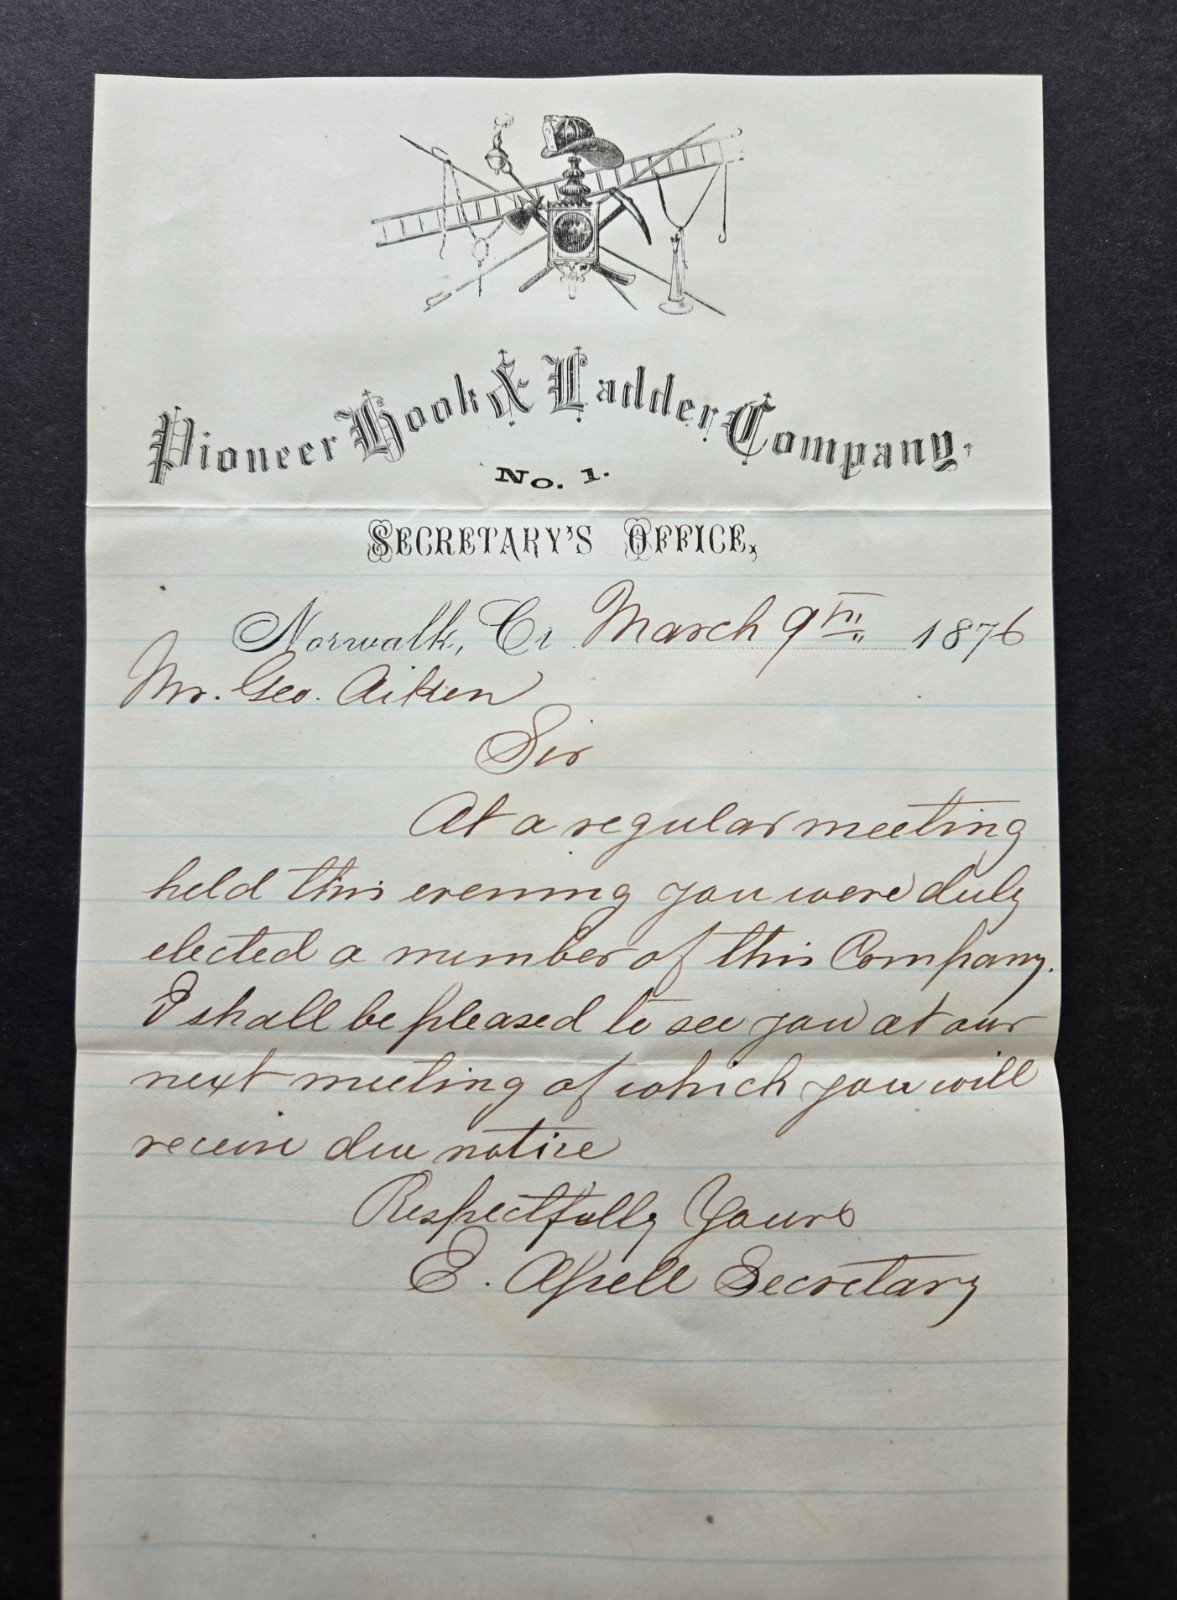 Pioneer Hook & Ladder Company,
No. 1.
SECRETARY'S OFFICE,
Norwalk, Ct March 9th 1876
Mr. Geo. Aitken
Sir
At a regular meeting
held this evening you were duly
elected a member of this Company.
I shall be pleased to see you at our
next meeting of which you will
receive due notice
Respectfully Yours
E. Apell Secretary